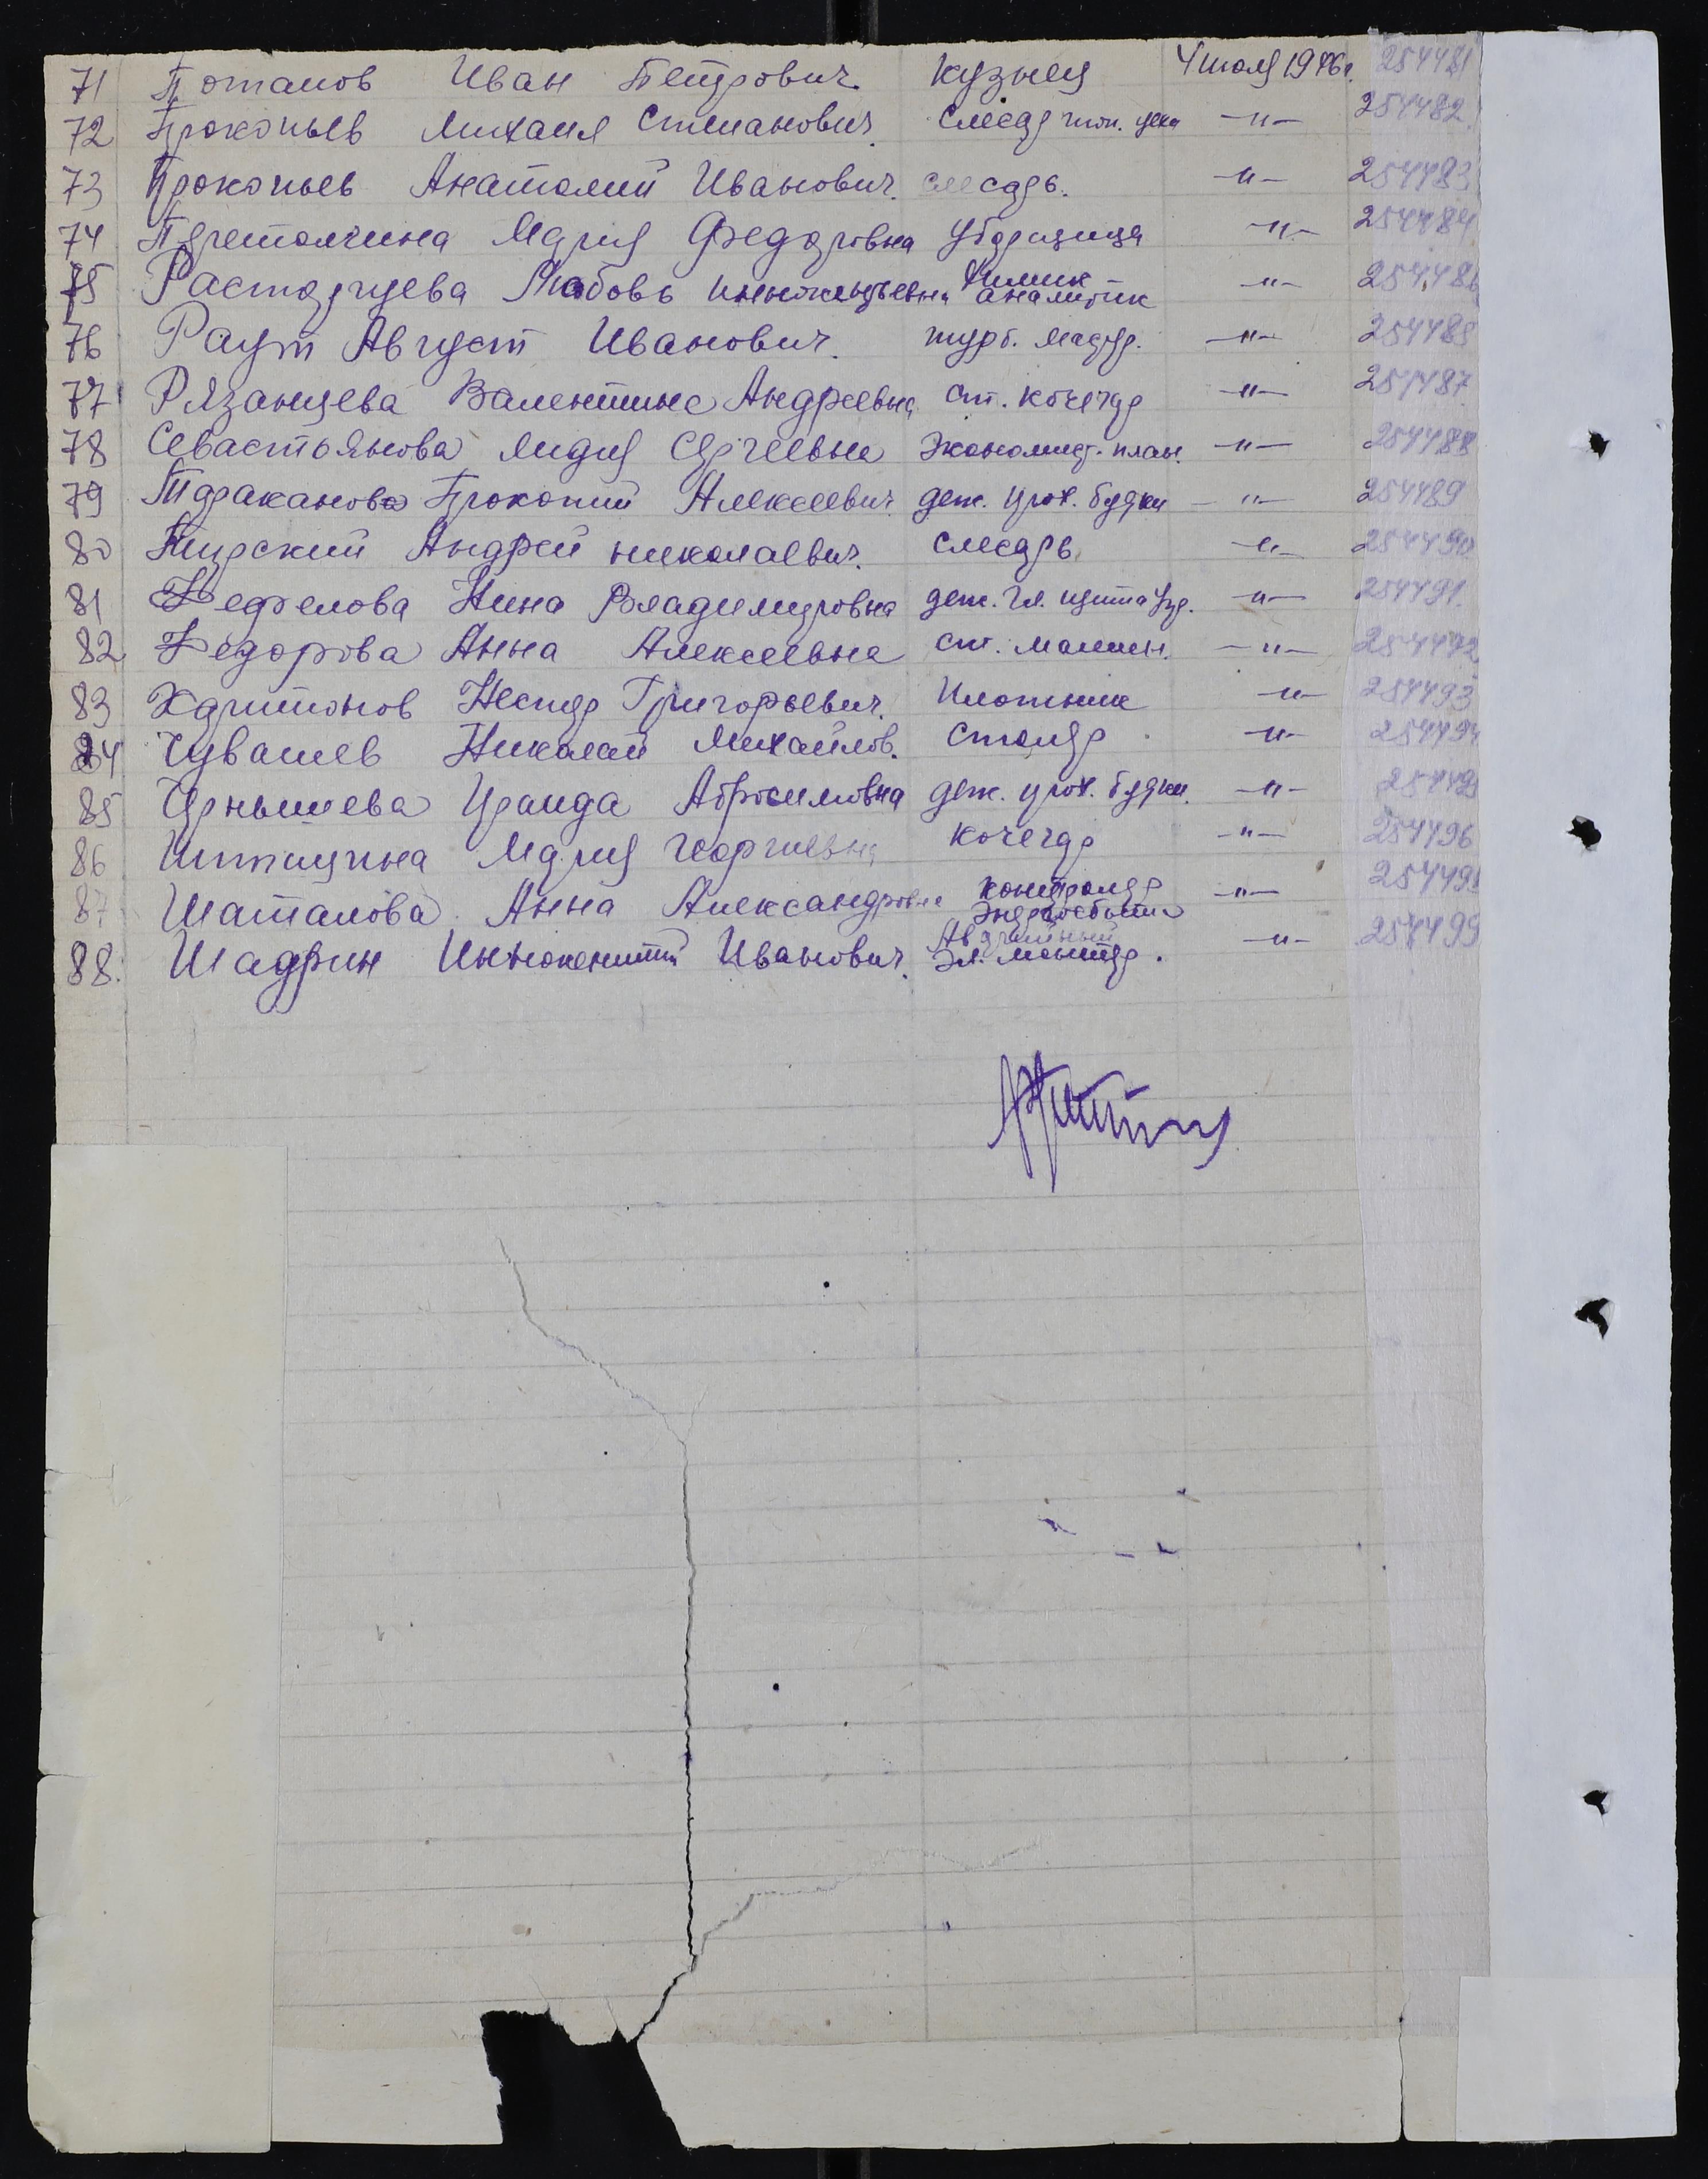 71 Потапов Иван Петрович. кузнец 4 июля 1946 г. 254481
72 Прокопьев Михаил Степанович. Слесарь топ. цеха —"— 254482
73 Прокопьев Анатолий Иванович. слесарь. —"— 254483
74 Перетолчина Мария Федоровна Уборщица —"— 254484
75 Расторгуева Любовь Иннокентьевна Химик аналитик —"— 254486
76 Раут Август Иванович. турб. мастер. —"— 254485
77 Рязанцева Валентина Андреевна ст. кочегар —"— 254487
78 Севастьянова Лидия Сергеевна Экономист. план. —"— 254488
79 Тараканов Прокопий Алексеевич. деж. прох. будки —"— 254489
80 Андрей николаевич. слесарь. —"— 254490
81 Фефелова Нина Владимировна деж. Гл. щита Упр. —"— 254491.
82 Федорова Анна Алексеевна ст. машин. —"— 254492
83 Харитонов Нестер Григорьевич. Плотник —"— 254493
84 Чувашев Николай Михайлов. столяр —"— 254494
85 Чернышева Ираида Абросимовна деж. прох. будки. —"— 25449
86 Мария Георгиевна кочегар —"— 254496
87 Шаталова Анна Александровна контролер Энергосбыта —"— 25449
88. Шадрин Иннокентий Иванович. Аварийный Эл. монтер. —"— 254499